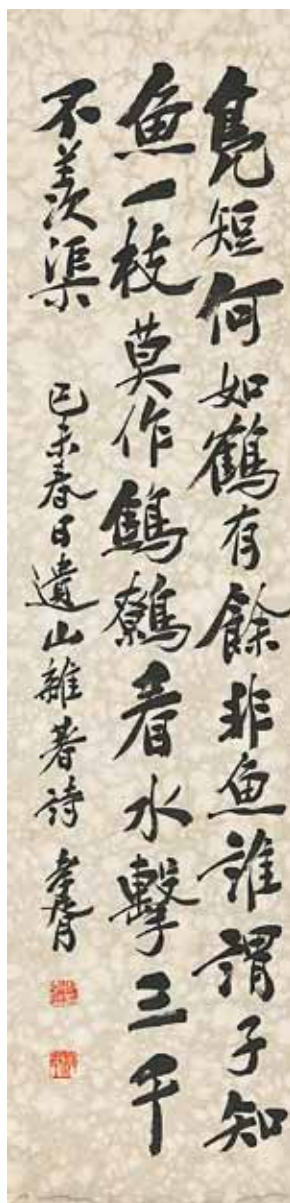 鳧短何如鶴有餘非魚誰謂子知
魚一枝莫作鷦鷯看水擊三千
不羨渠 己未春日遺山雜著詩 孝胥